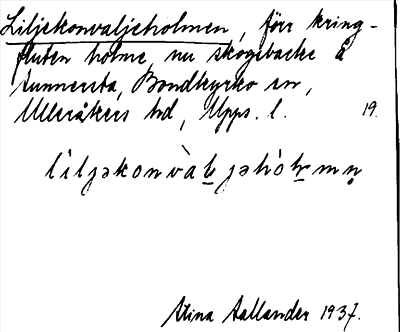 Liljekonvaljeholmen, förr kring-
fluten holme, nu skogsbacke å
Sunnersta, Bondkyrko sn,
Ulleråkers hd, Upps. l. 19.
Stina Sallander 1937.